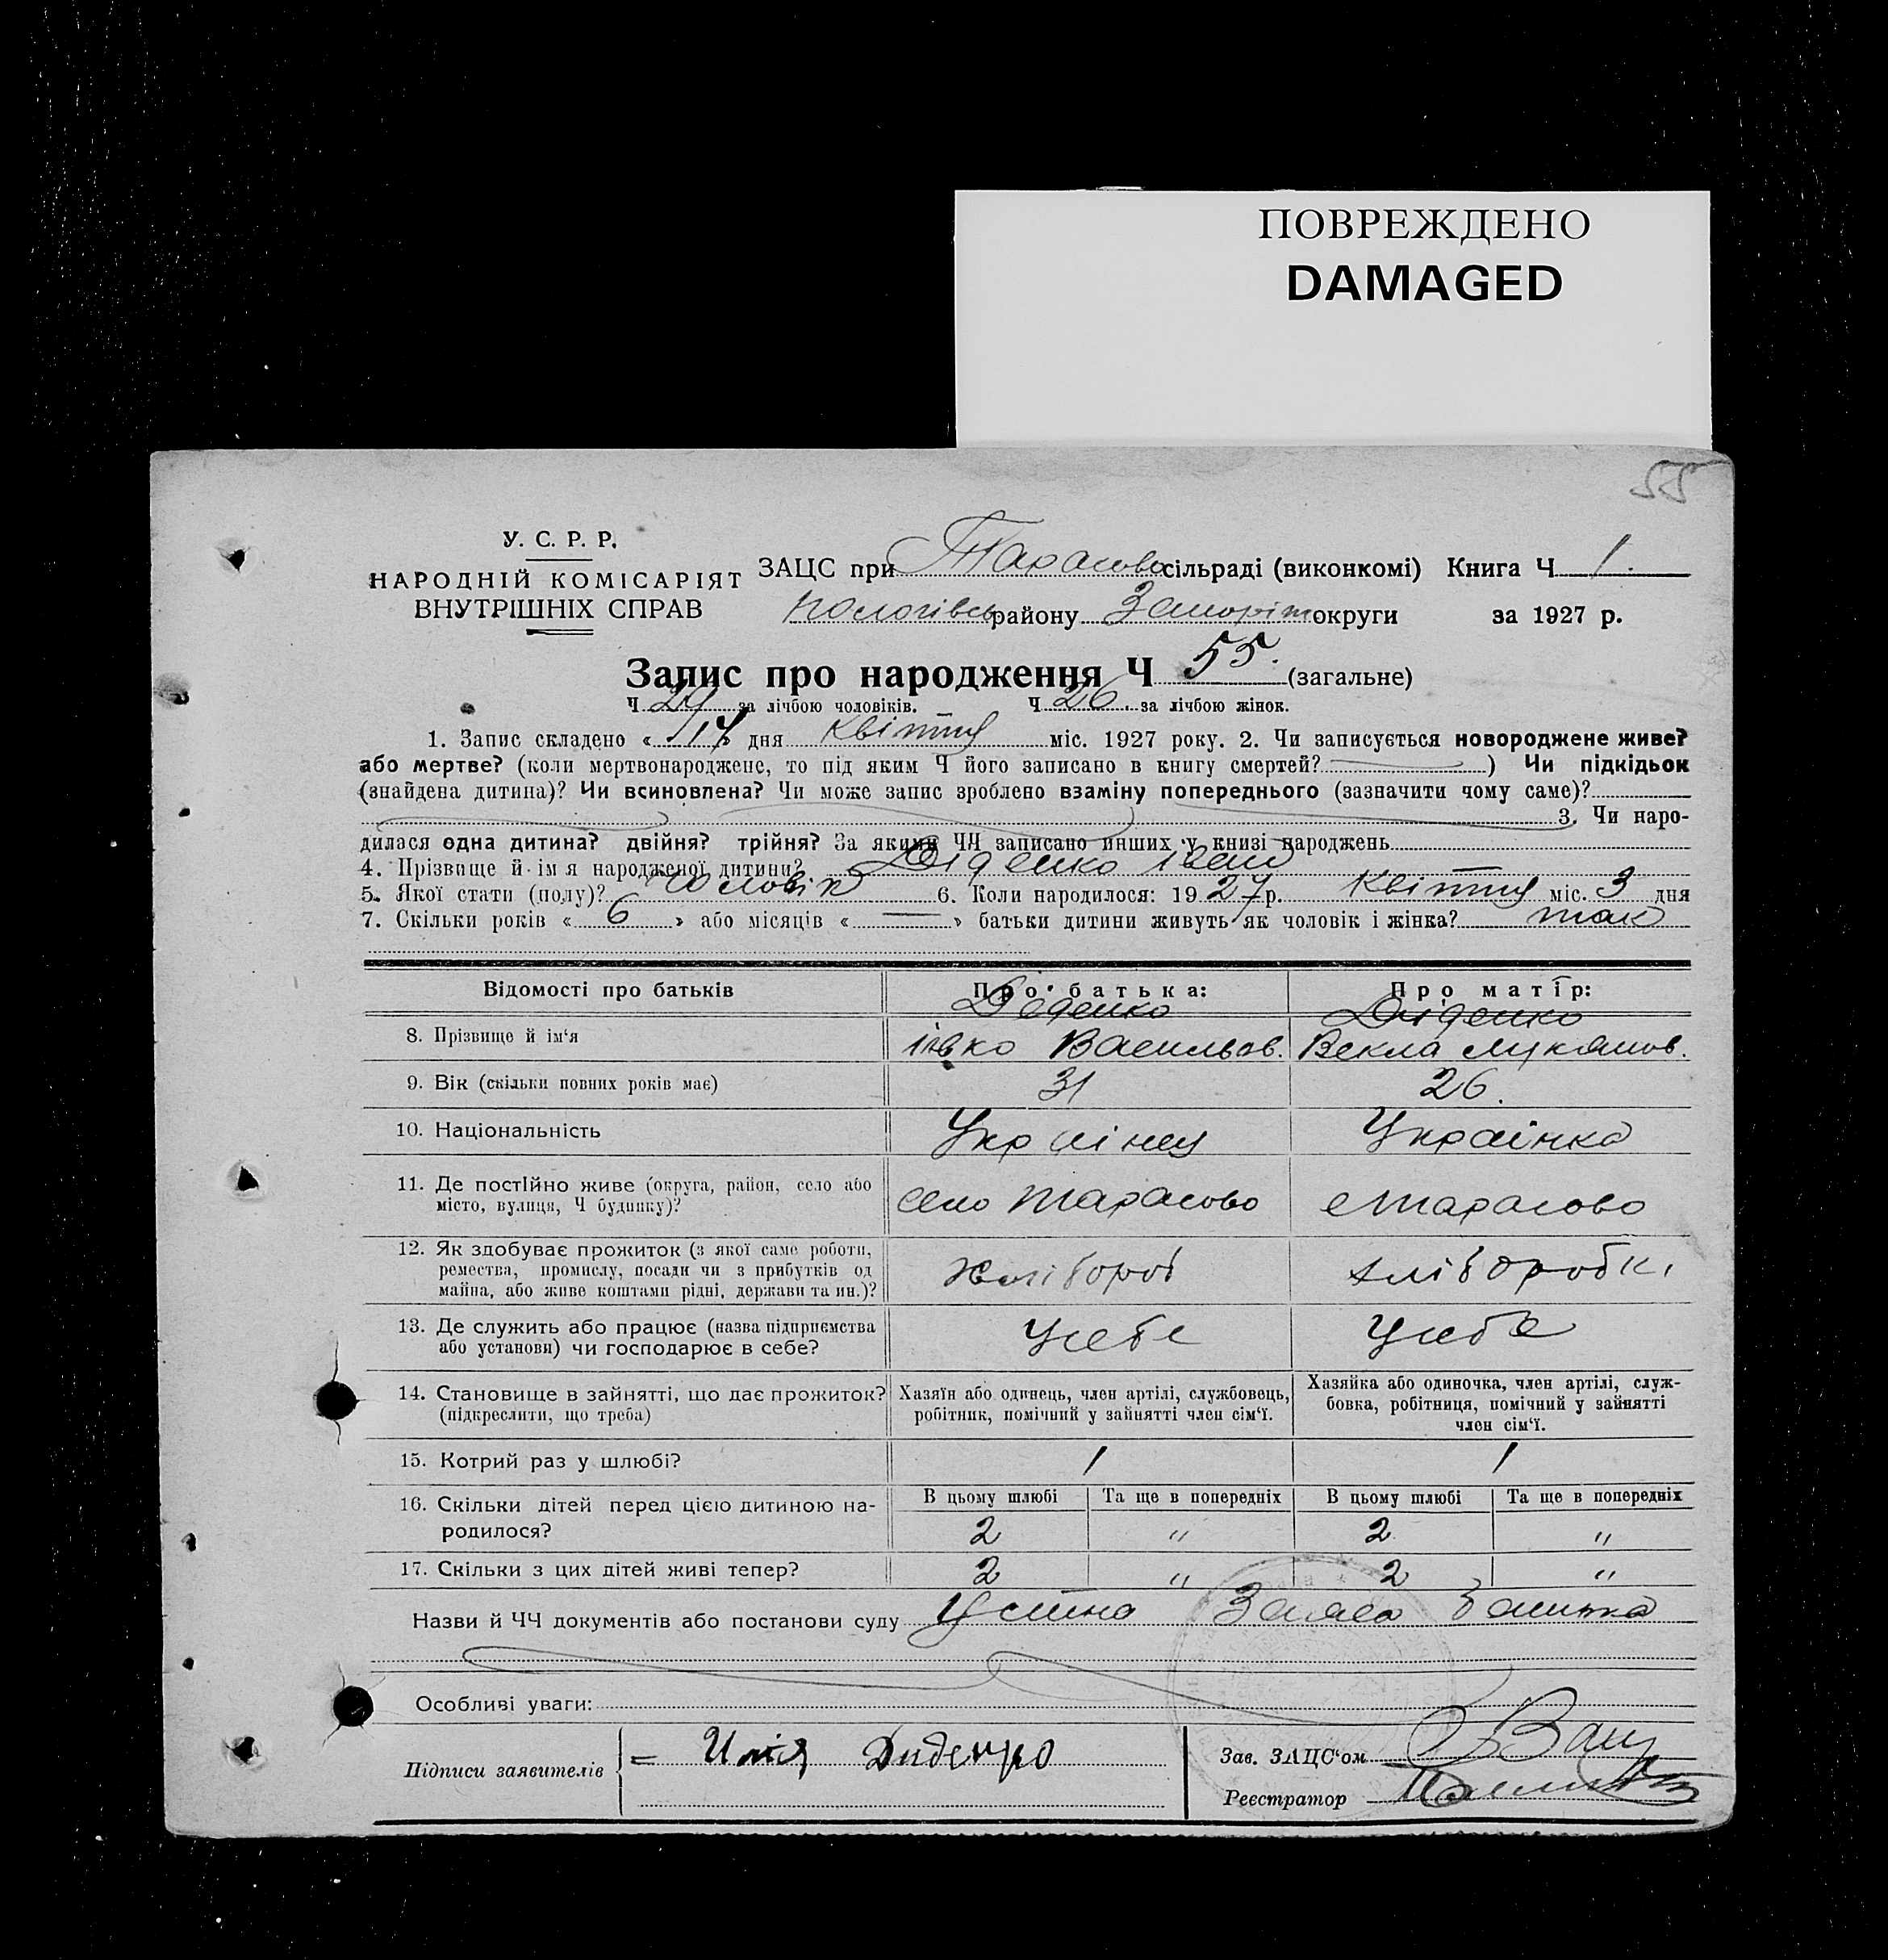 ПОВРЕЖДЕНО
DAMAGED
55
У. С. Р. Р.
НАРОДНІЙ КОМІСАРІЯТ
ВНУТРІШНІХ СПРАВ
ЗАЦС при Тарасово сільраді (виконкомі) Книга Ч 1.
Пологівсь району Запоріж округи за 1927 р.
Запис про народження Ч 55. (загальне)
Ч 29 за лічбою чоловіків. Ч 26. за лічбою жінок.
1. Запис складено « 14 » дня квітня міс. 1927 року. 2. Чи записується новороджене живе?
або мертве? (коли мертвонароджене, то під яким Ч його записано в книгу смертей? ) Чи підкідьок
(знайдена дитина)? Чи всиновлена? Чи може запис зроблено взаміну попереднього (зазначити чому саме)?
3. Чи наро-
дилася одна дитина? двійня? трійня? За якими ЧЧ записано инших у книзі народжень
4. Прізвище й ім я народженої дитини? Діденко Іван
5. Якої стати (полу)? чоловік 6. Коли народилося: 1927 р. квітня міс. 3 дня
7. Скільки років « 6 » або місяців « — » батьки дитини живуть як чоловік і жінка? так
Відомості про батьків Про батька: Про матір:
8. Прізвище й ім'я Діденко Васильов. Діденко Векла Лукянов.
9. Вік (скільки повних років має) 31 26.
10. Національність Українец Українка
11. Де постійно живе (округа, район, село або
місто, вулиця, Ч будинку)? село Тарасово с Тарасово
12. Як здобуває прожиток (з якої саме роботи,
ремества, промислу, посади чи з прибутків од
майна, або живе коштами рідні, держави та ин.)? Хлібороб хліборобка
13. Де служить або працює (назва підприємства
або установи) чи господарює в себе? Усебе Усебе
14. Становище в зайнятті, що дає прожиток?
(підкреслити, що треба)
Хазяїн або одинець, член артілі, службовець,
робітник, помічний у зайнятті член сім'ї.
Хазяйка або одиночка, член артілі, служ-
бовка, робітниця, помічний у зайнятті
член сім'ї.
15. Котрий раз у шлюбі? 1 1
16. Скільки дітей перед цією дитиною на-
родилося?
В цьому шлюбі Та ще в попередніх В цьому шлюбі Та ще в попередніх
2 " 2 "
17. Скільки з цих дітей живі тепер? 2 " 2 "
Назви й ЧЧ документів або постанови суду Устна Заява батька
Особливі уваги:
Підписи заявителів = Илія Диденко
Зав. ЗАЦС'ом
Реєстратор